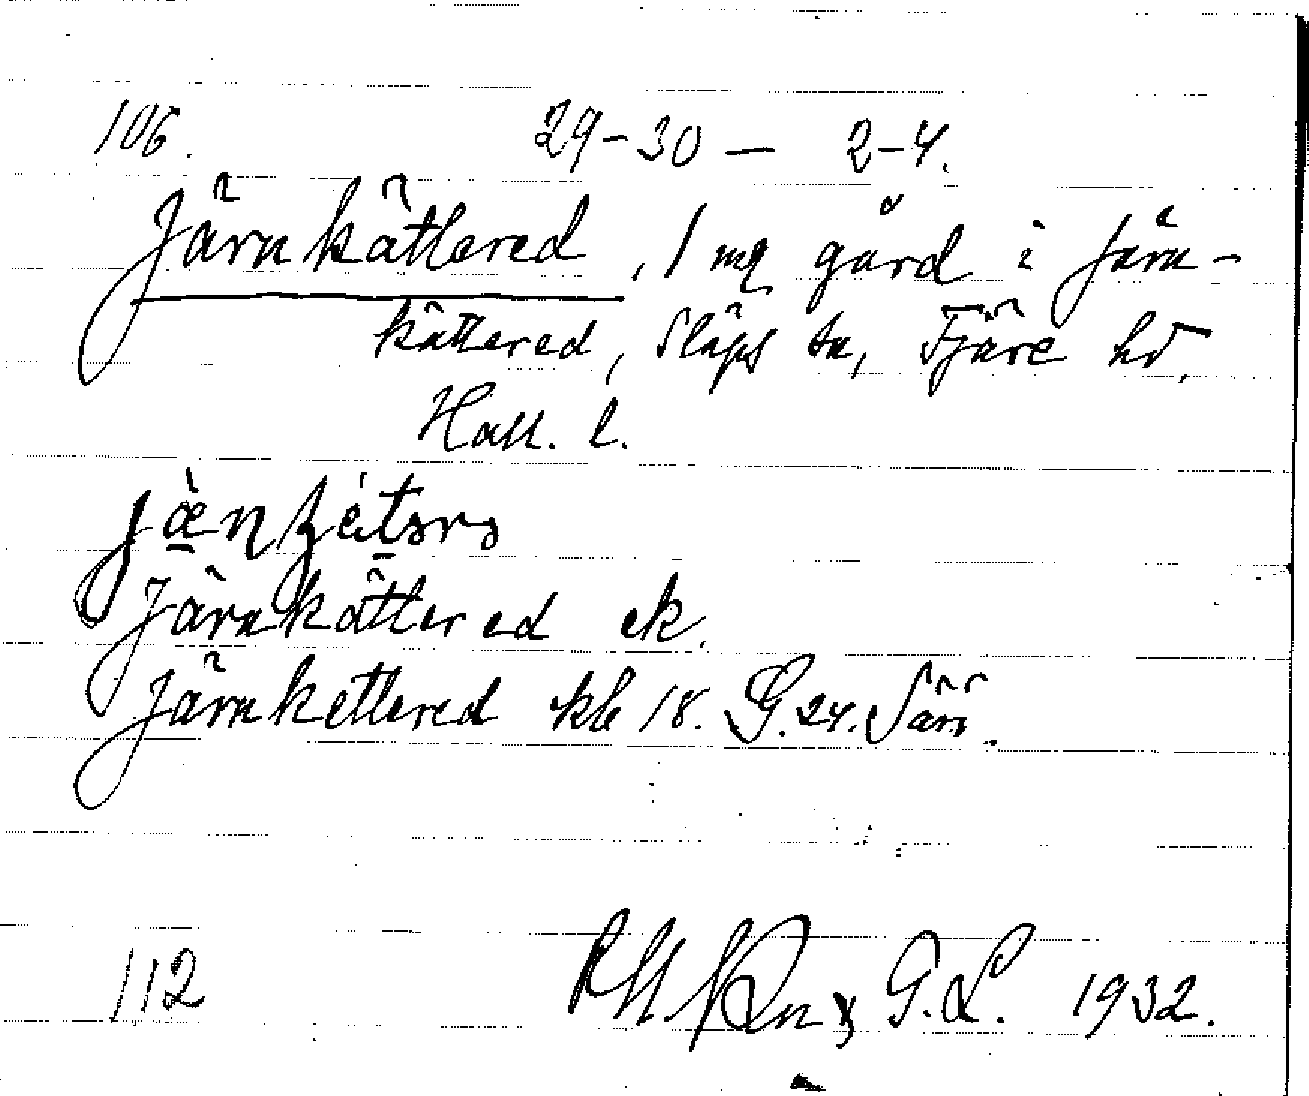 106. 29-30 — 2-4.
Järnkättered, 1 mg gård i Järn-
kättered, Släps sn, Fjäre hd,
Hall. l.
Järnkättered ek.
Järnkettered kb 18. G. 24. Särö.
112 G.L. 1932.